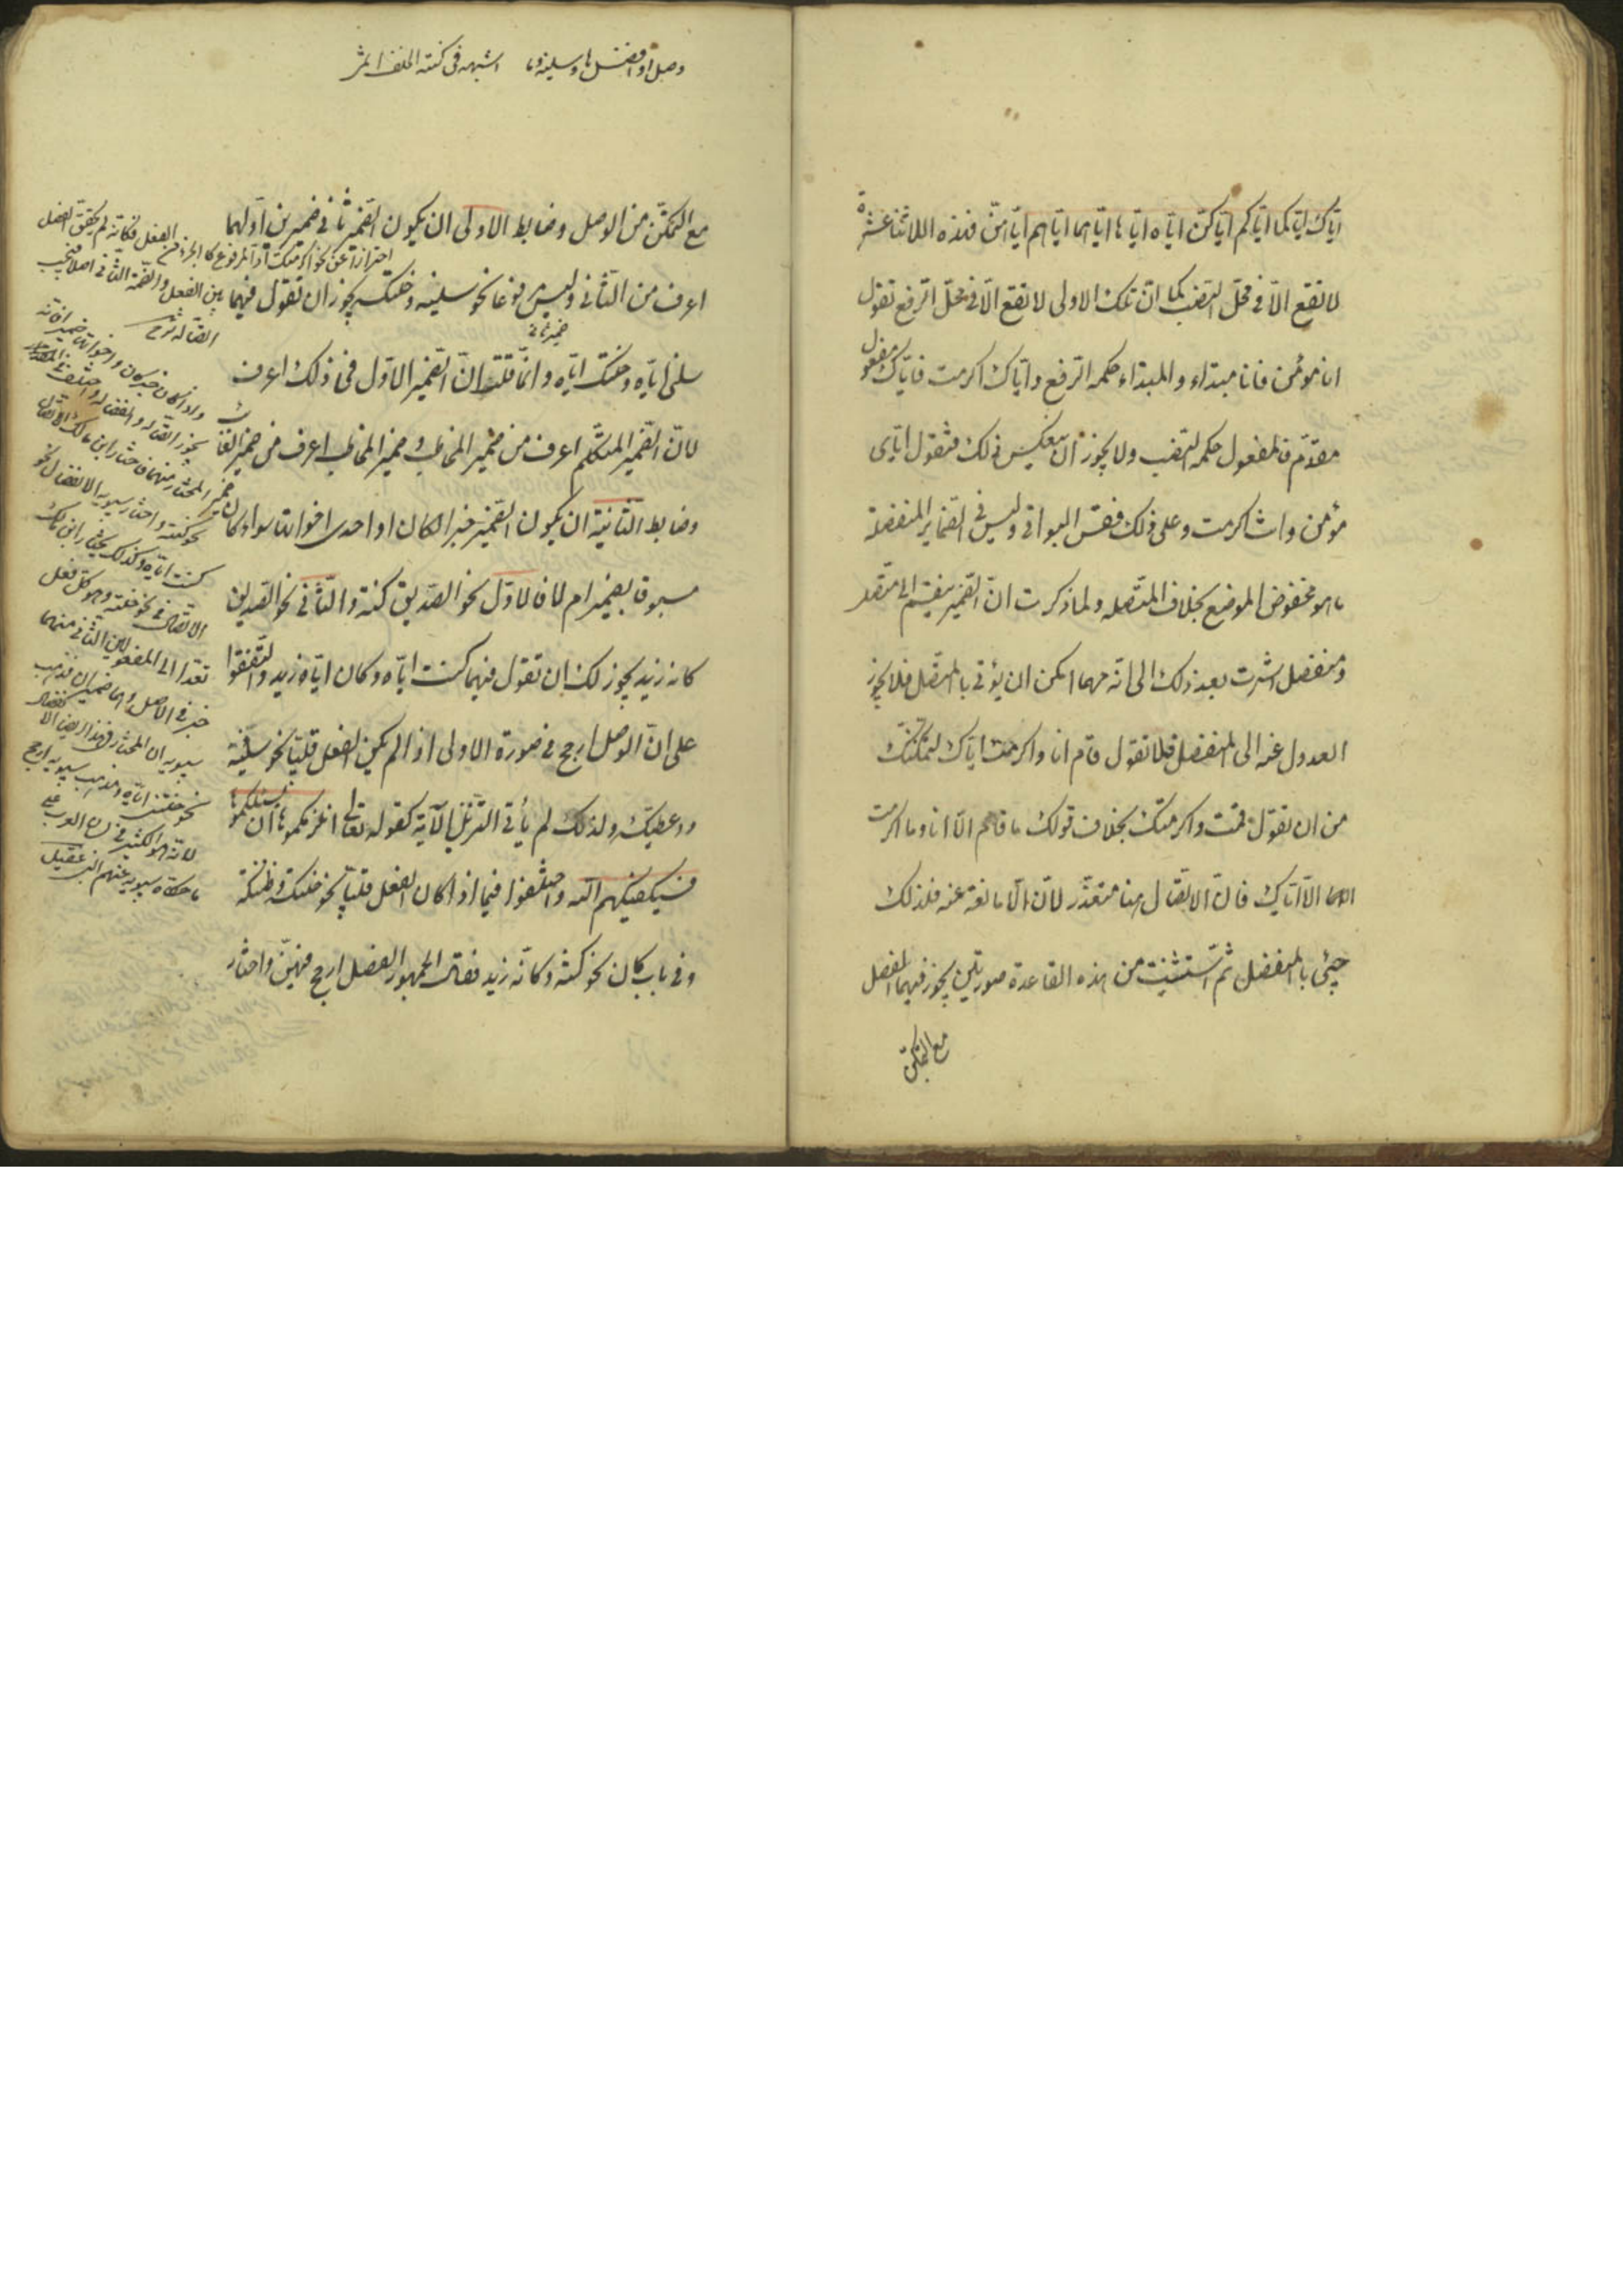 اياك اياكما اياكم اياكن اياه اياها اياهما اياهم اياهن فهذه الاثنا عشرة
لا تقع الا في محل النصب كما ان تلك الاولى لا تقع الا في محل الرفع تقول
انا مؤمن فانا مبتداء والمبتداء حكمه الرفع واياك اكرمت فاياك مفعول
مقدم والمفعول حكمه النصب ولا يجوز ان يعكس ذلك فتقول اياى
مؤمن وانت اكرمت وعلى ذلك فقس البواقي وليس في الضماير المنفصلة
ما هو مخفوض الموضع بخلاف المتصله ولما ذكرت ان الضمير ينقسم الى متصل
ومنفصل اشرت بعد ذلك الى انه مهما امكن ان يؤتى بالمتصل فلا يجوز
العدول عنه الى المنفصل فلا تقول قام انا واكرمت اياك لتمكنك
من ان تقول قمت واكرمتك بخلاف قولك ما قام الا انا وما اكرمت
الا اياك فان الاتصال هنا متعذر لان الا مانعة عنه فلذلك
جيئ بالمنفصل ثم استثنيت من هذه القاعدة صورتين يجوز فيهما الفصل
مع التمكن
وصل او افصل ها سلنيه وما اشبهه في كنته الخلف انتمى
مع التمكن من الوصل وضابط الاولى ان يكون الضمير ثاني ضميرين اولهما
اعرف من الثاني وليس مرفوعا نحو سلنيه وخلتكه يجوز ان تقول فيهما
سلني اياه وخلتك اياه وانما قلت ان الضمير الاول في ذلك اعرف
لان الضمير المتكلم اعرف من ضمير المخاطب وضمير المخاطب اعرف من ضمير الغائب
وضابط الثانية ان يكون الضمير خبرا لكان او احدى اخواتها سواء كان
مسبوقا بضمير ام لا فالاول نحو الصديق كنته والثاني نحو الصديق
كانه زيد يجوز لك ان تقول فيهما كنت اياه وكان اياه زيد واتفقوا
على ان الوصل ارجح في صورة الاولى اذا لم يكن الفعل قلبيا نحو سلنيه
واعطيكه ولذلك لم يأت في التنزيل الا به كقوله تعالى انلزمكموها ان يسئلكموها
فسيكفيكهم الله واختلفوا فيما اذا كان الفعل قلبيا نحو خلتكه وظننتكه
وفي باب كان نحو كنته وكانه زيد فقال الجمهور الفصل ارجح فيهن واختار
احترازا عن نحو اكرمتك اذ المرفوع كالجزء من
الفعل فكانه لم يتحقق الفصل
بين الفعل والضمير الثاني اصلا فيجب
اتصاله شرح
ضمير ثاني
واذا كان خبر كان واخواتها ضميرا فانه
يجوز اتصاله وانفصاله واختلف في
المختار منهما فاختار ابن مالك الاتصال
نحو كنته واختار سيبويه الانفصال نحو
كنت اياه وكذلك يختار ابن مالك
الاتصال في نحو خلتنيه وهو كل فعل
تعدا الى المفعولين الثاني منهما
خبر في الاصل وهما ضميران ومذهب
سيبويه ان المختار في هذا ايضا الانفصال
نحو خلتني اياه ومذهب سيبويه ارجح
لانه هو الكثير في لسان العرب على
ما حكاه سيبويه عنهم ابن عقيل